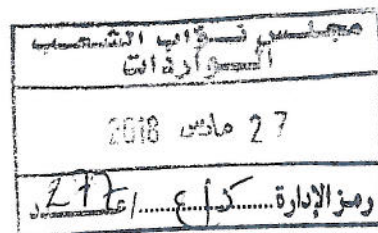 مجلس نواب الشعب
الواردات
27 مارس 2018
رمز الإدارة ......... /ع ...... 277